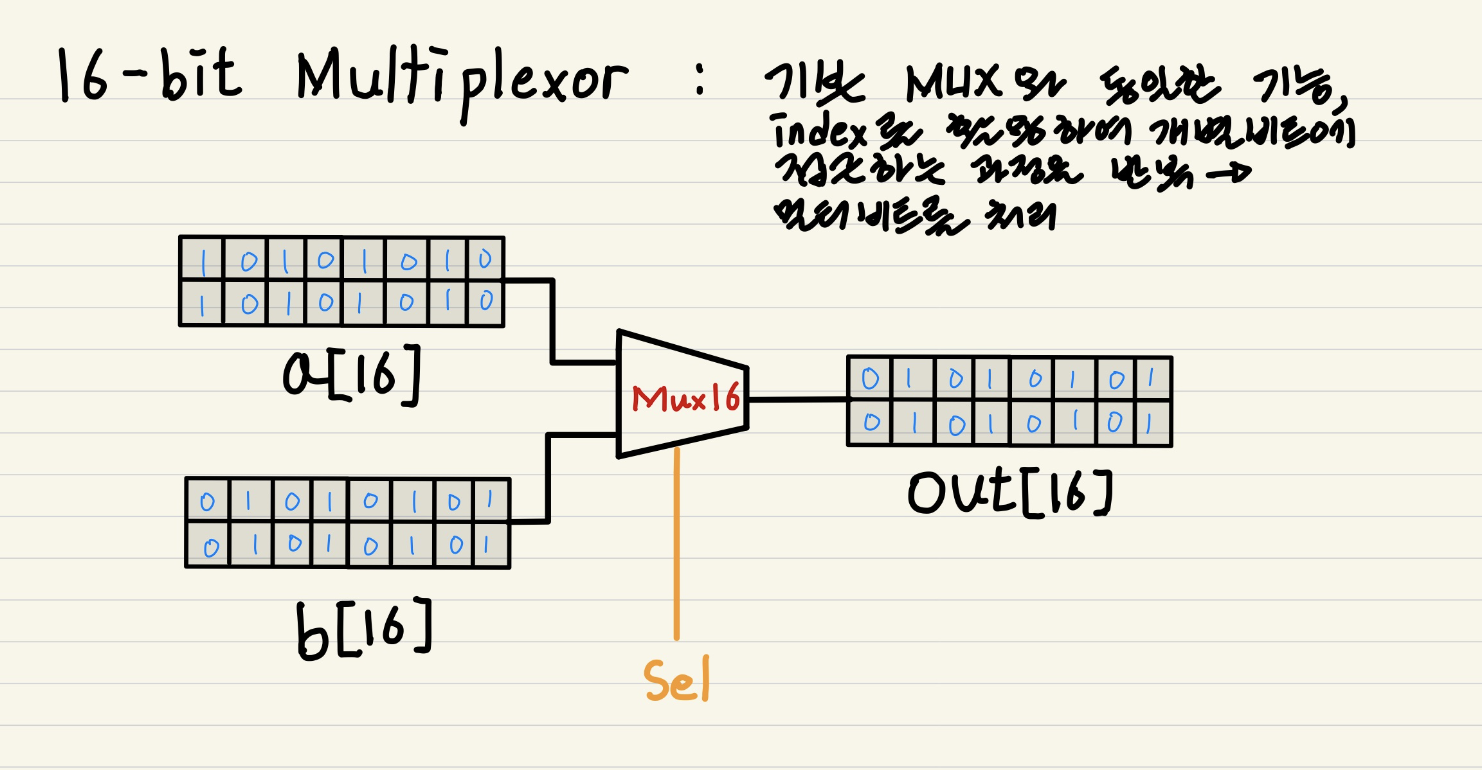 16-bit Multiplexor : 기본 MUX와 동일한 기능,
index를 활용하여 개별비트에
접근하는 과정을 반복 →
멀티비트를 처리
1 0 1 0 1 0 1 0
1 0 1 0 1 0 1 0
a[16]
Mux16
0 1 0 1 0 1 0 1
0 1 0 1 0 1 0 1
out[16]
0 1 0 1 0 1 0 1
0 1 0 1 0 1 0 1
b[16]
Sel